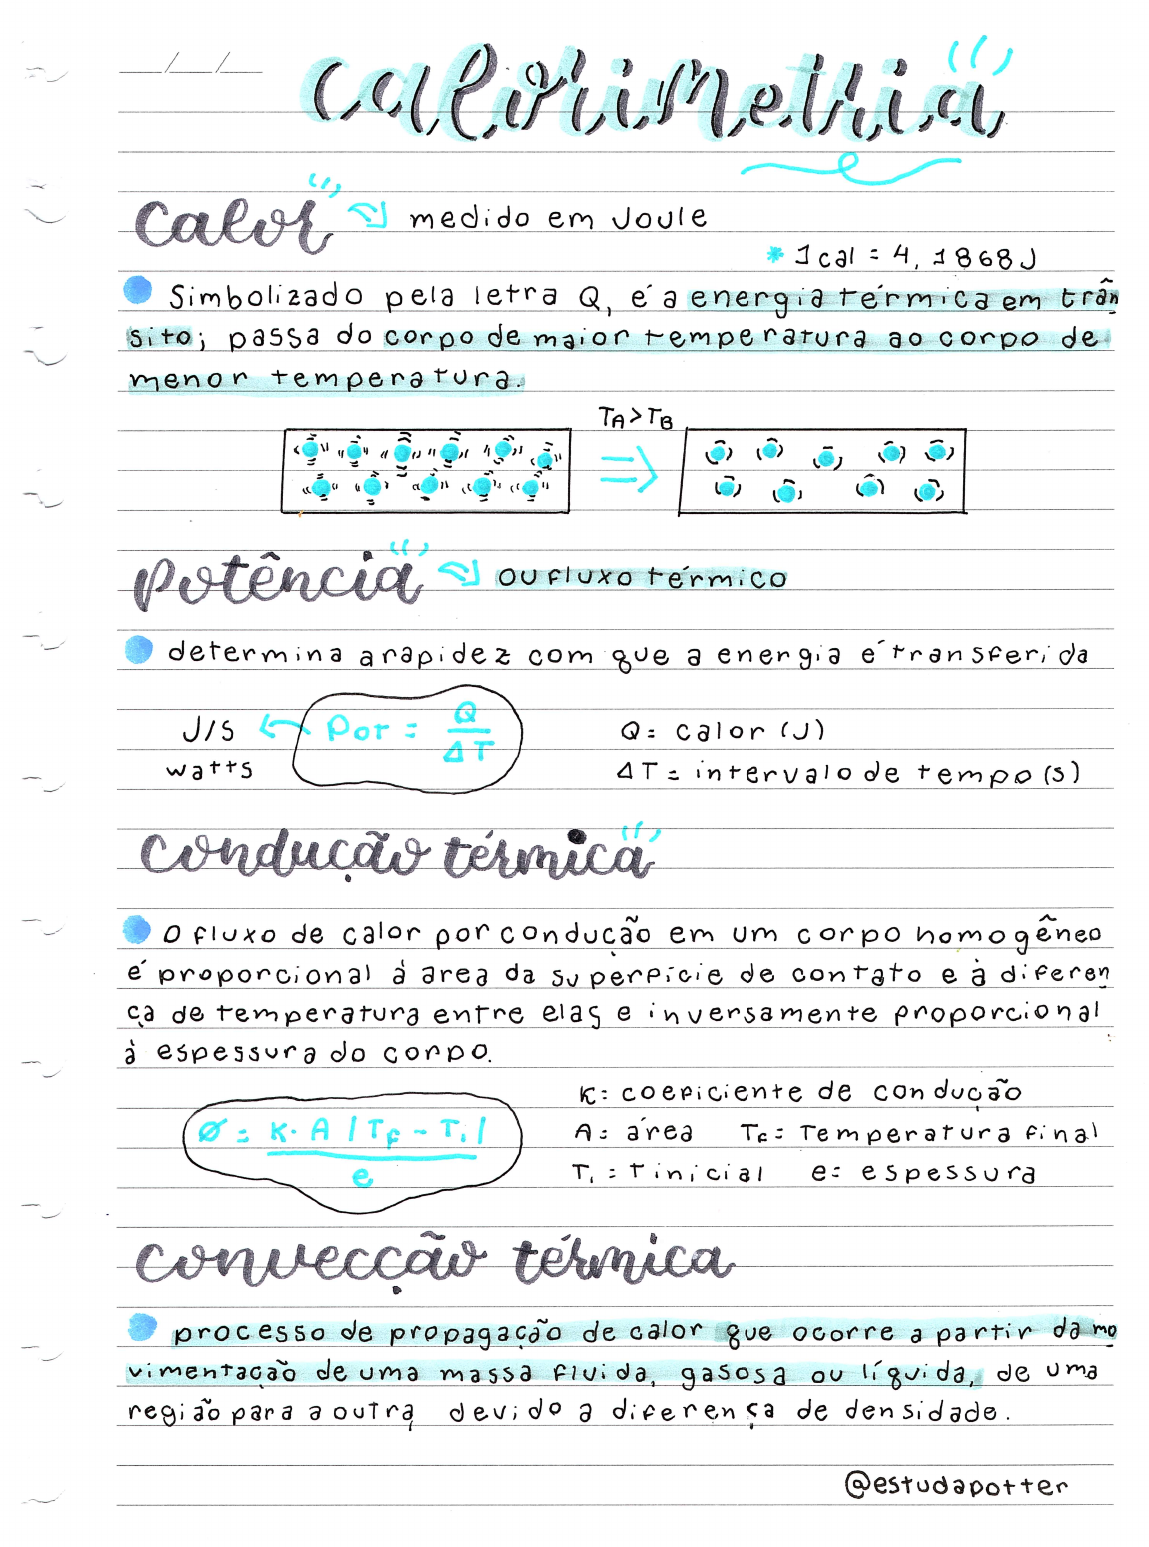 __/__/__
Calorimetria
Calor medido em Joule
* 1cal = 4,1868J
Simbolizado pela letra Q, é a energia térmica em trân
sito; passa do corpo de maior temperatura ao corpo de
menor temperatura.
TA > TB
potência ou fluxo térmico
determina a rapidez com que a energia é transferida
J/s ← Pot = Q/ΔT Q = calor (J)
watts ΔT = intervalo de tempo (s)
condução térmica
O fluxo de calor por condução em um corpo homogêneo
é proporcional à area da superfície de contato e à diferen
ça de temperatura entre elas e inversamente proporcional
à espessura do corpo.
K = coeficiente de condução
Ø = K · A |Tf - Ti| / e A = área Tf = Temperatura final
Ti = t inicial e = espessura
convecção térmica
processo de propagação de calor que ocorre a partir da mo
vimentação de uma massa fluida, gasosa ou líquida, de uma
região para a outra devido a diferença de densidade.
@estudapotter